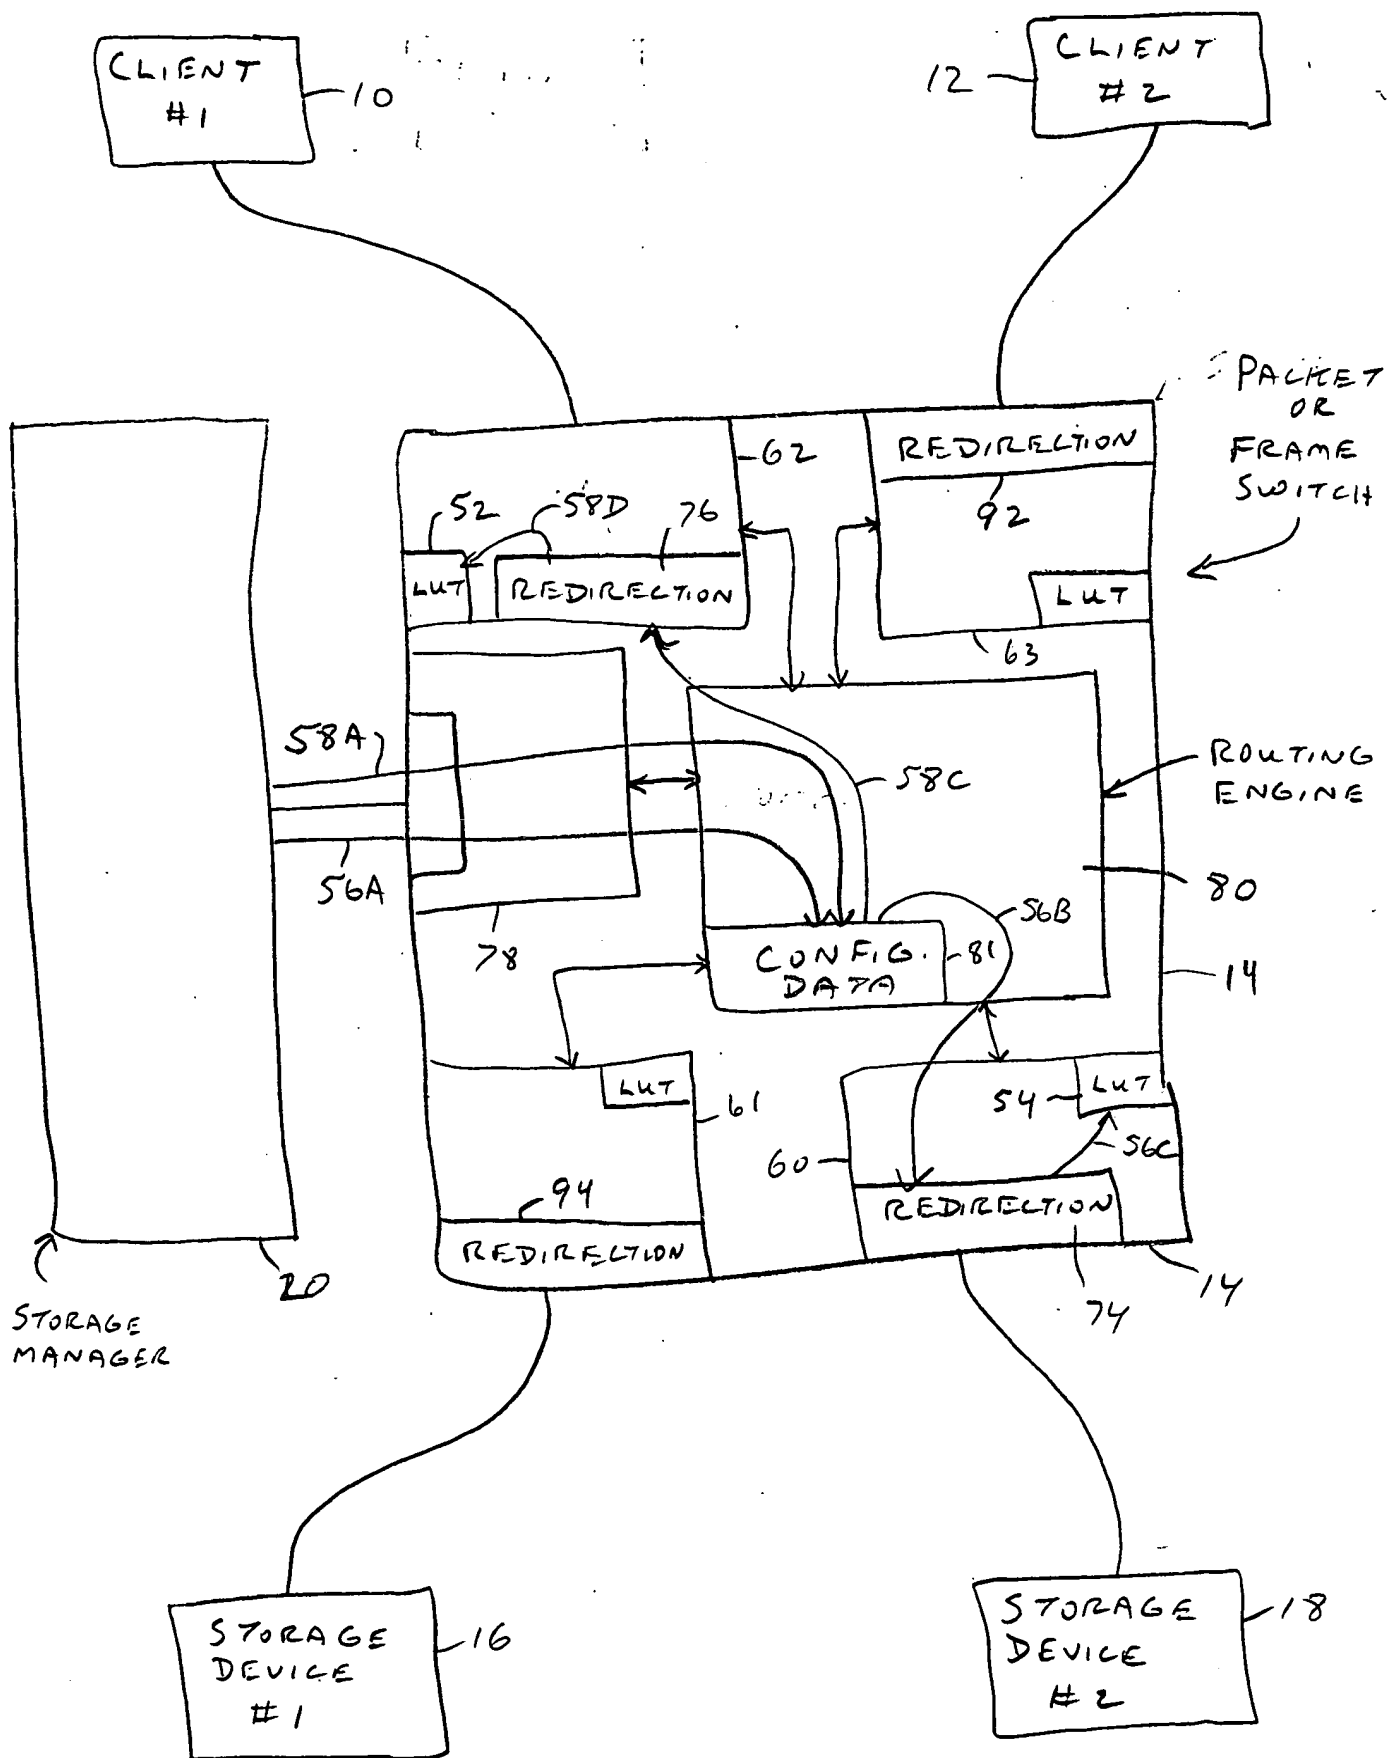 CLIENT
#1
10
12
CLIENT
#2
PACKET
OR
FRAME
SWITCH
62
REDIRECTION
92
52
58D
76
LUT
REDIRECTION
LUT
63
58A
58C
ROUTING
ENGINE
56A
80
56B
78
CONFIG.
DATA
81
14
LUT
61
54
LUT
60
56C
94
REDIRECTION
REDIRECTION
20
74
14
STORAGE
MANAGER
STORAGE
DEVICE
#1
16
STORAGE
DEVICE
#2
18